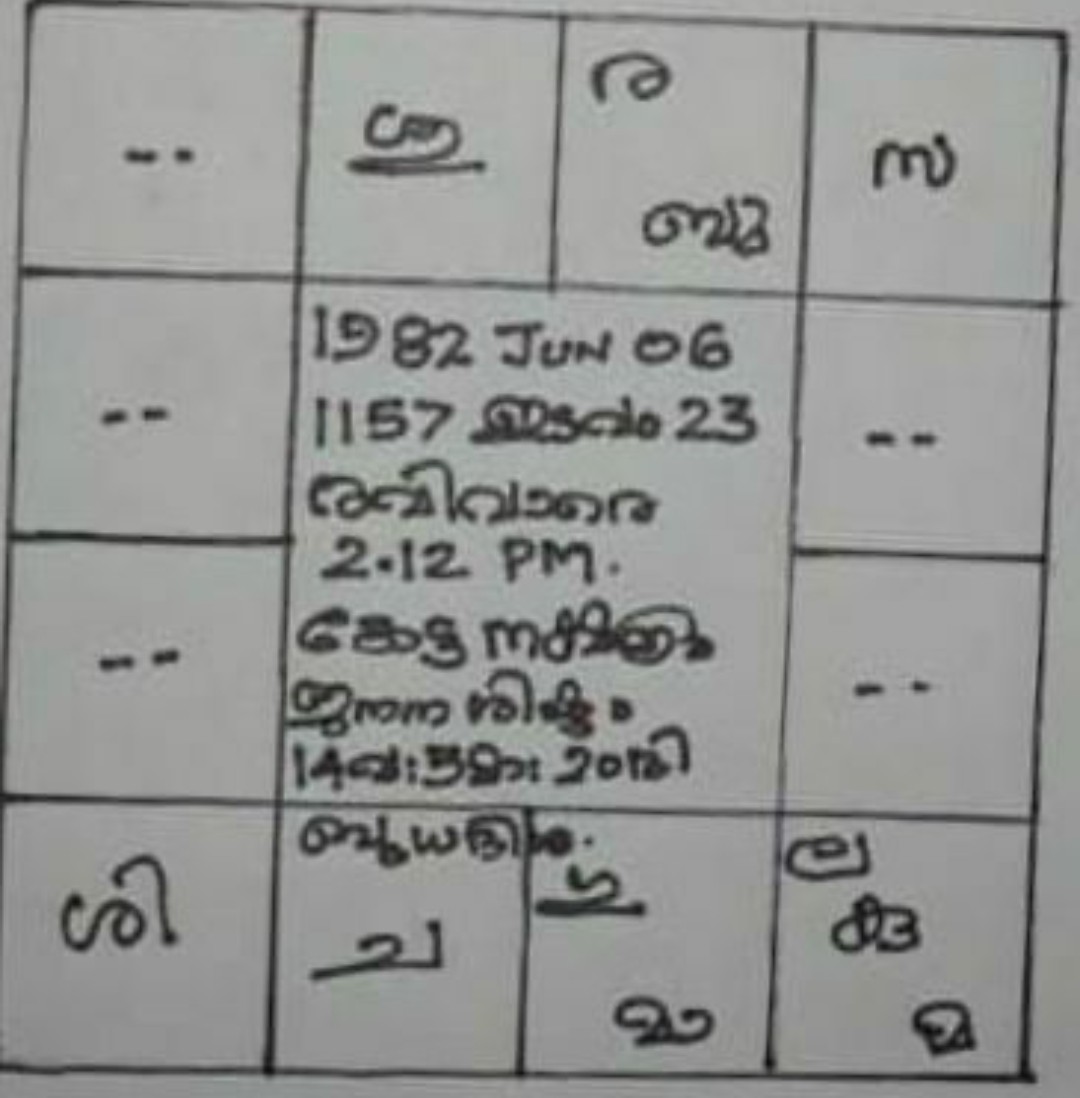 -- ശു ര സ
ബു
1982 JUN 06
1157 ഇടവം 23
-- --
രവിവാരെ
2.12 PM.
കേട്ട നക്ഷത്രം
-- --
ജനന ശിഷ്ടം
14വ:3മാ: 20ദി
ബുധദശ.
ശി ച ഗു ല
കു
മാ മ